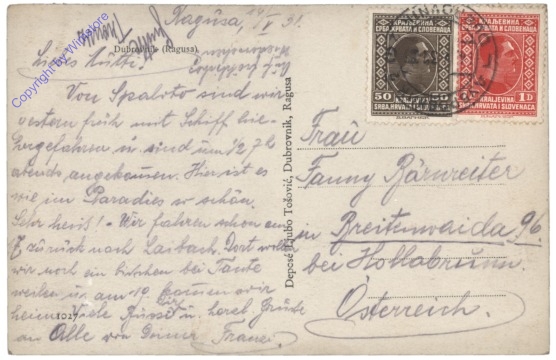 Ragusa, 14/V 31.
Dubrovnik (Ragusa)
Liebe Mutti!
Von Spalato sind wir
gestern früh mit Schiff hie-
hergefahren u. sind um 1/2 7 h
abends angekommen. Hier ist es
wie im Paradies so schön.
Sehr heiß! - Wir fahren schon am
zurück nach Laibach. Dort
wir noch ein bißchen bei Tante
u. am 19. kommen wir
heim. Viele Bussi u. herzl. Grüße
an Alle von Deiner Franzi.
1017
Deposé Ljubo Tošović, Dubrovnik, Ragusa
КРАЉЕВИНА
СРБА, ХРВАТА И СЛОВЕНАЦА
50
KRALJEVINA
SRBA, HRVATA I SLOVENACA
КРАЉЕВИНА
СРБА, ХРВАТА И СЛОВЕНАЦА
1D
KRALJEVINA
SRBA, HRVATA I SLOVENACA
Frau
Fanny Bärnreiter
in Breitenwaida 96.
bei Hollabrunn.
Österreich.
Copyright by Wildstore